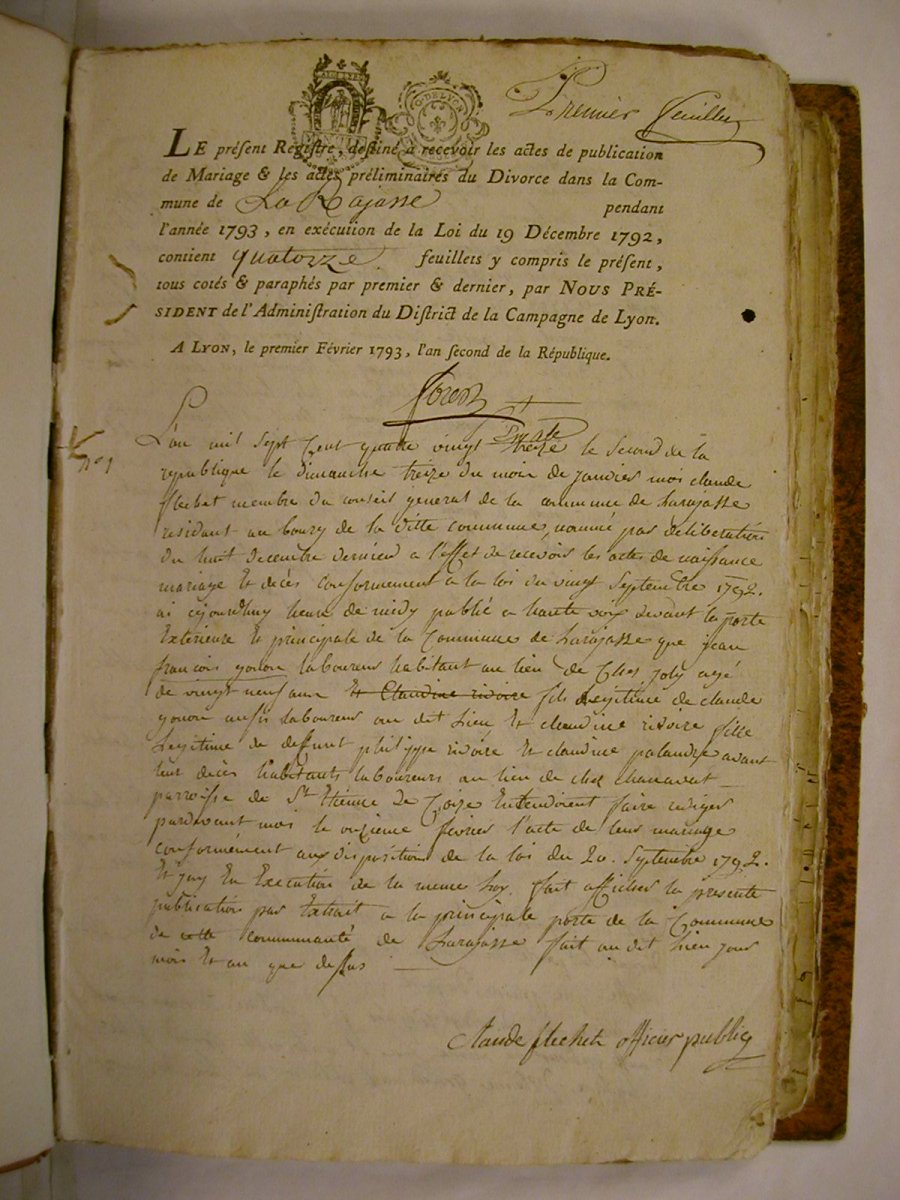 Premier feuillet
LE préſent Regiſtre, deſtiné à recevoir les actes de publication
de Mariage & les actes préliminaires du Divorce dans la Com-
mune de La Rajasse pendant
l'année 1793, en exécution de la Loi du 19 Décembre 1792,
contient quatorze feuillets y compris le préſent,
tous cotés & paraphés par premier & dernier, par NOUS PRÉ-
SIDENT de l'Adminiſtration du Diſtrict de la Campagne de Lyon.
A LYON, le premier Février 1793, l'an ſecond de la République.
N° 1
L'an mil sept Cent quatre vingt treize le second de la
republique le dimanche treize du mois de janvier moi claude
flechet membre du conseil general de la commune de Larajasse
residant au bourg de la ditte commune, nommé par deliberation
du huit decembre dernier a l'effet de recevoir les actes de naissance
mariage Et decès conformement a la loi du vingt Septembre 1792.
ai cejourdhuy heure de midy publié a haute voix devant la porte
Exterieure Et principale de la Commune de Larajasse que jean
françois gonon laboureur habitant au lieu de Chez joly agé
de vingt neuf ans Et Claudine rivoire fils legitime de claude
gonon aussi laboureur au dit Lieu Et claudine rivoire fille
Legitime de deffunt philippe rivoire Et claudine palandre avant
leur decès habitants laboureurs au lieu de chez chanavat
parroisse de St Etienne de Coize Entendoient faire rediger
pardevant moi le onzieme fevrier l'acte de leur mariage
conformément aux dispositions de la loi du 20. Septembre 1792.
Et j'ay En Execution de la meme Loy fait afficher la presente
publication par Extrait a la principale porte de la Commune
de cette communauté de Larajasse fait au dit Lieu jour
mois Et an que dessus
Claude flechet officier public